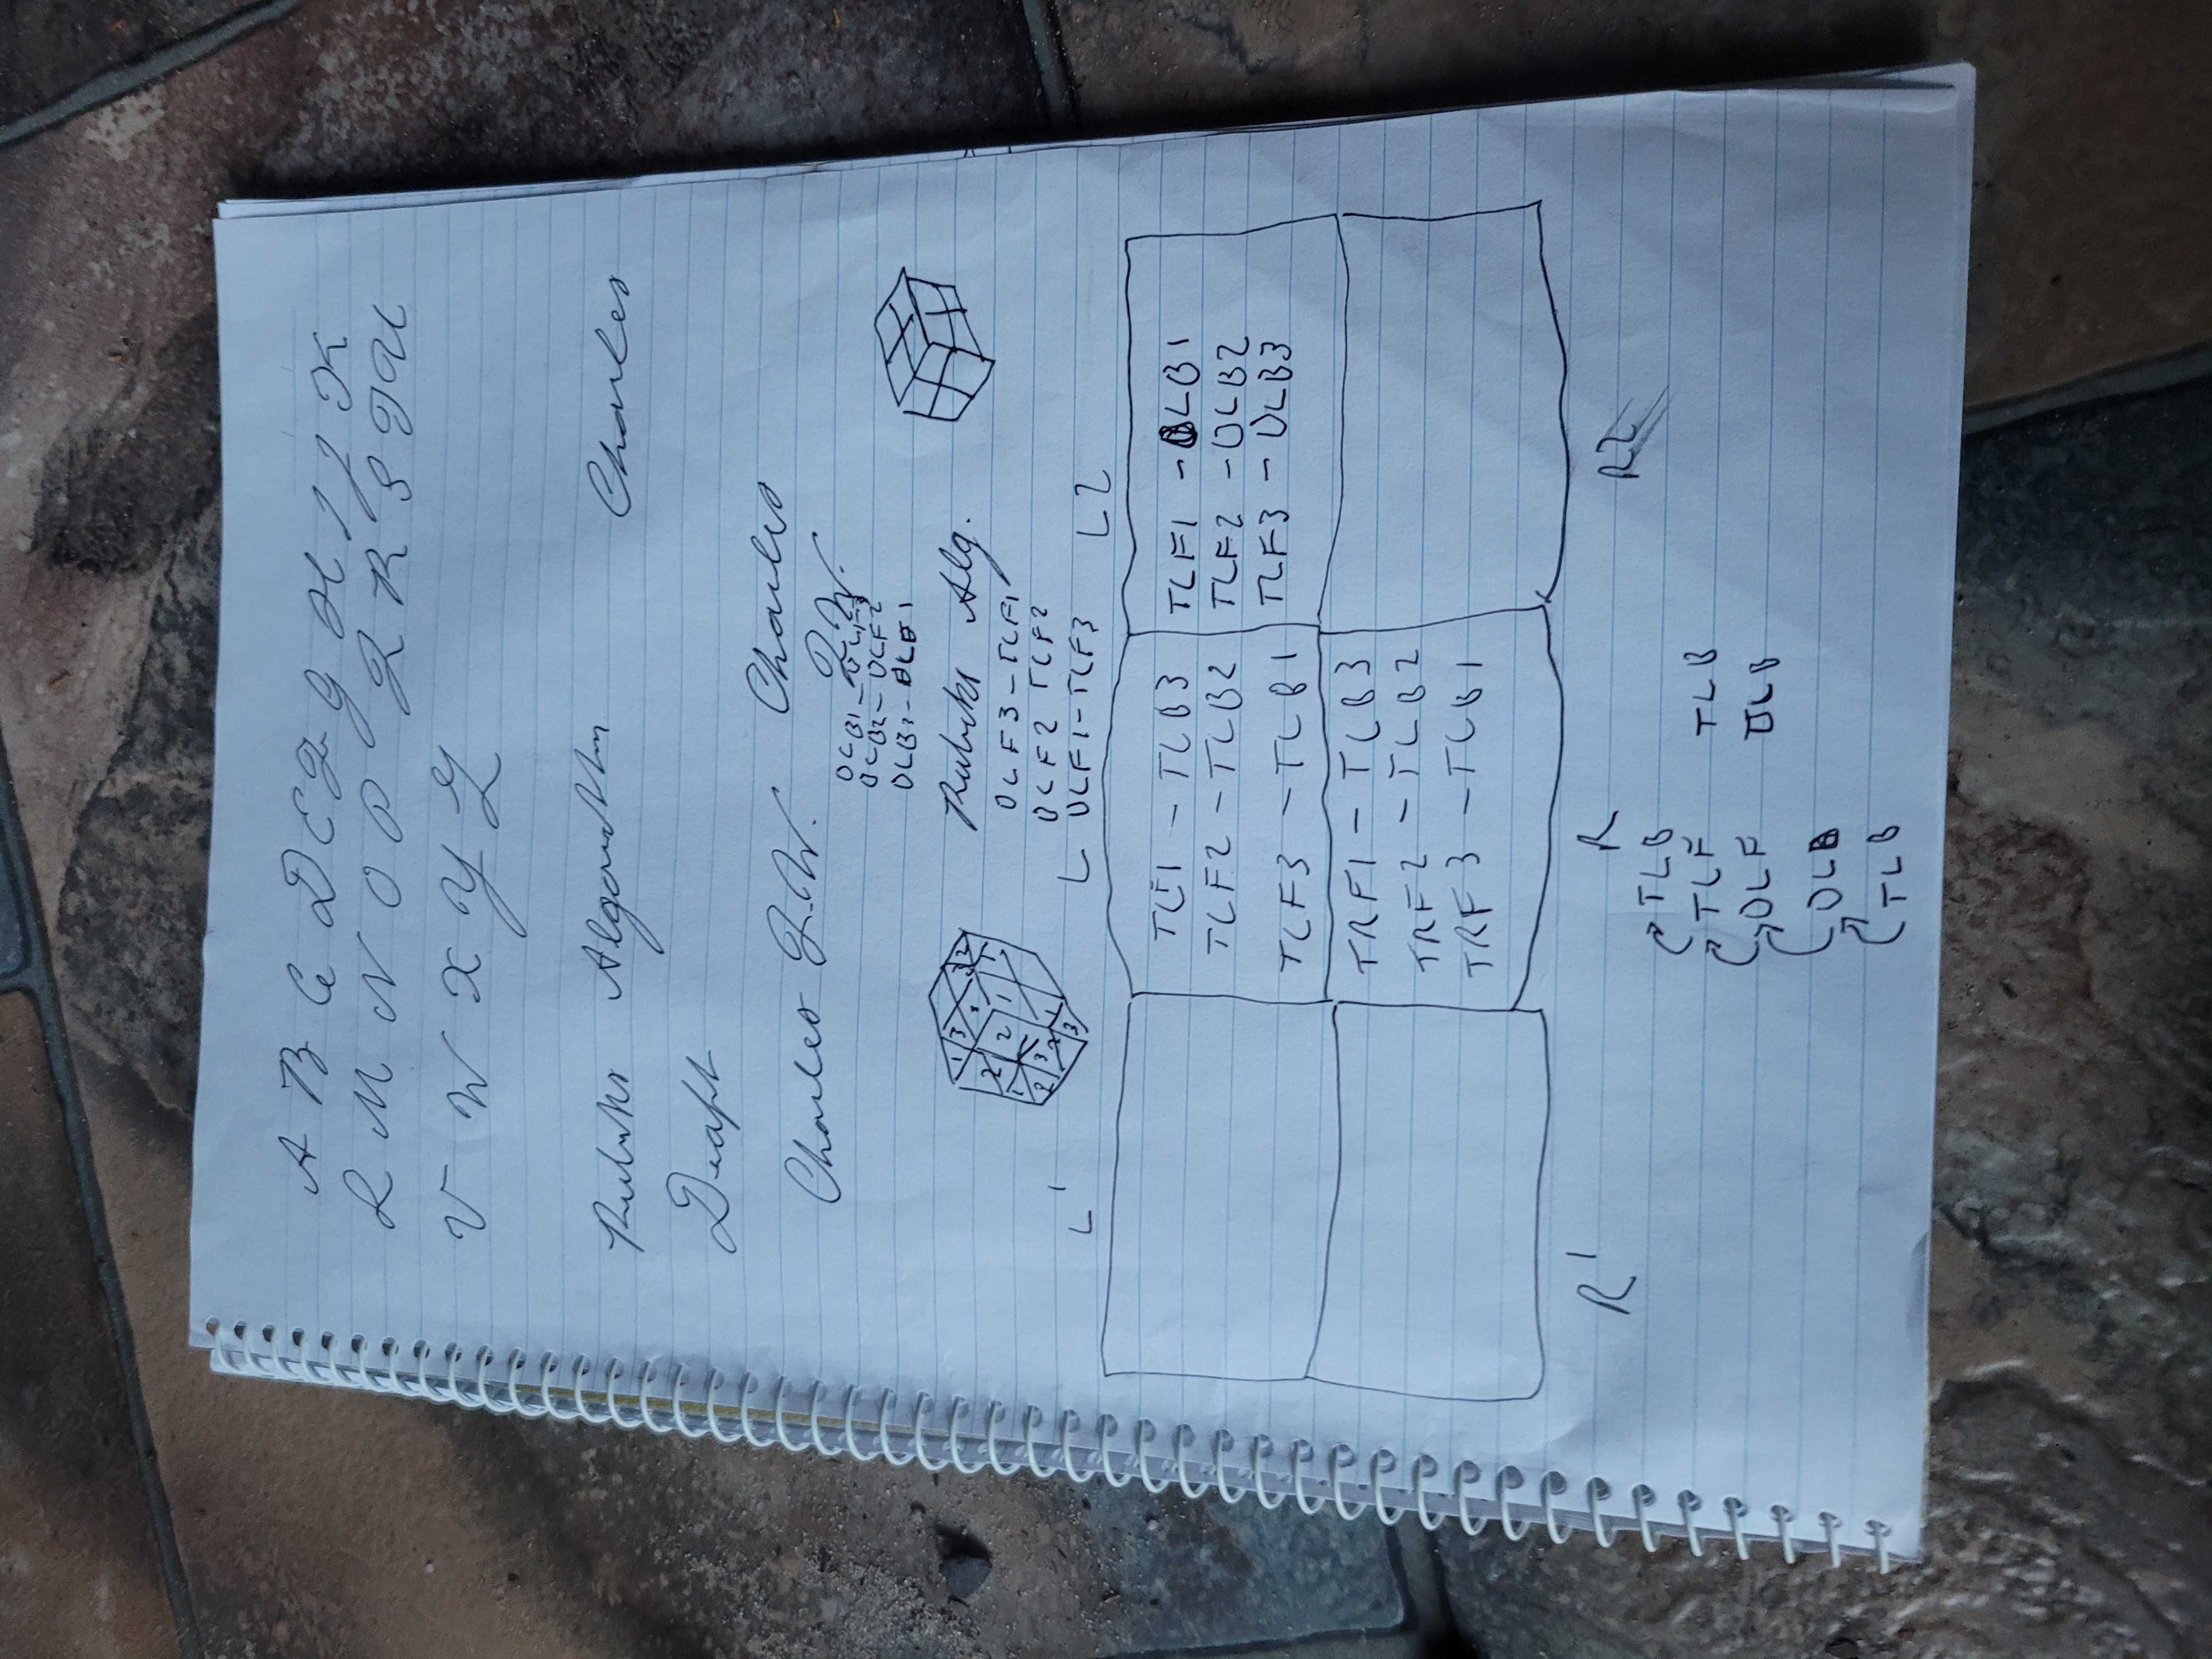 A B C D E F G H I J K
L M N O P Q R S T U
V W X Y Z
Rubiks Algorithm Charles
Draft
Charles
Charles F.W.
F.W.
DLB1 - DLF3
DLB2 - DLF2
DLB3 - DLF1
1 3 3 2
3
2 2 1 1
1
2 3 2 1
3
Rubiks Alg.
DLF3 - TLF1
DLF2 TLF2
DLF1 - TLF3
L' L L2
TLF1 - TLB3
TLF2 - TLB2
TLF3 - TLB1
TLF1 - DLB1
TLF2 - DLB2
TLF3 - DLB3
TRF1 - TLB3
TRF2 - TLB2
TRF3 - TLB1
R' R R2
TLB
TLF TLB
DLF DLB
DLB
TLB